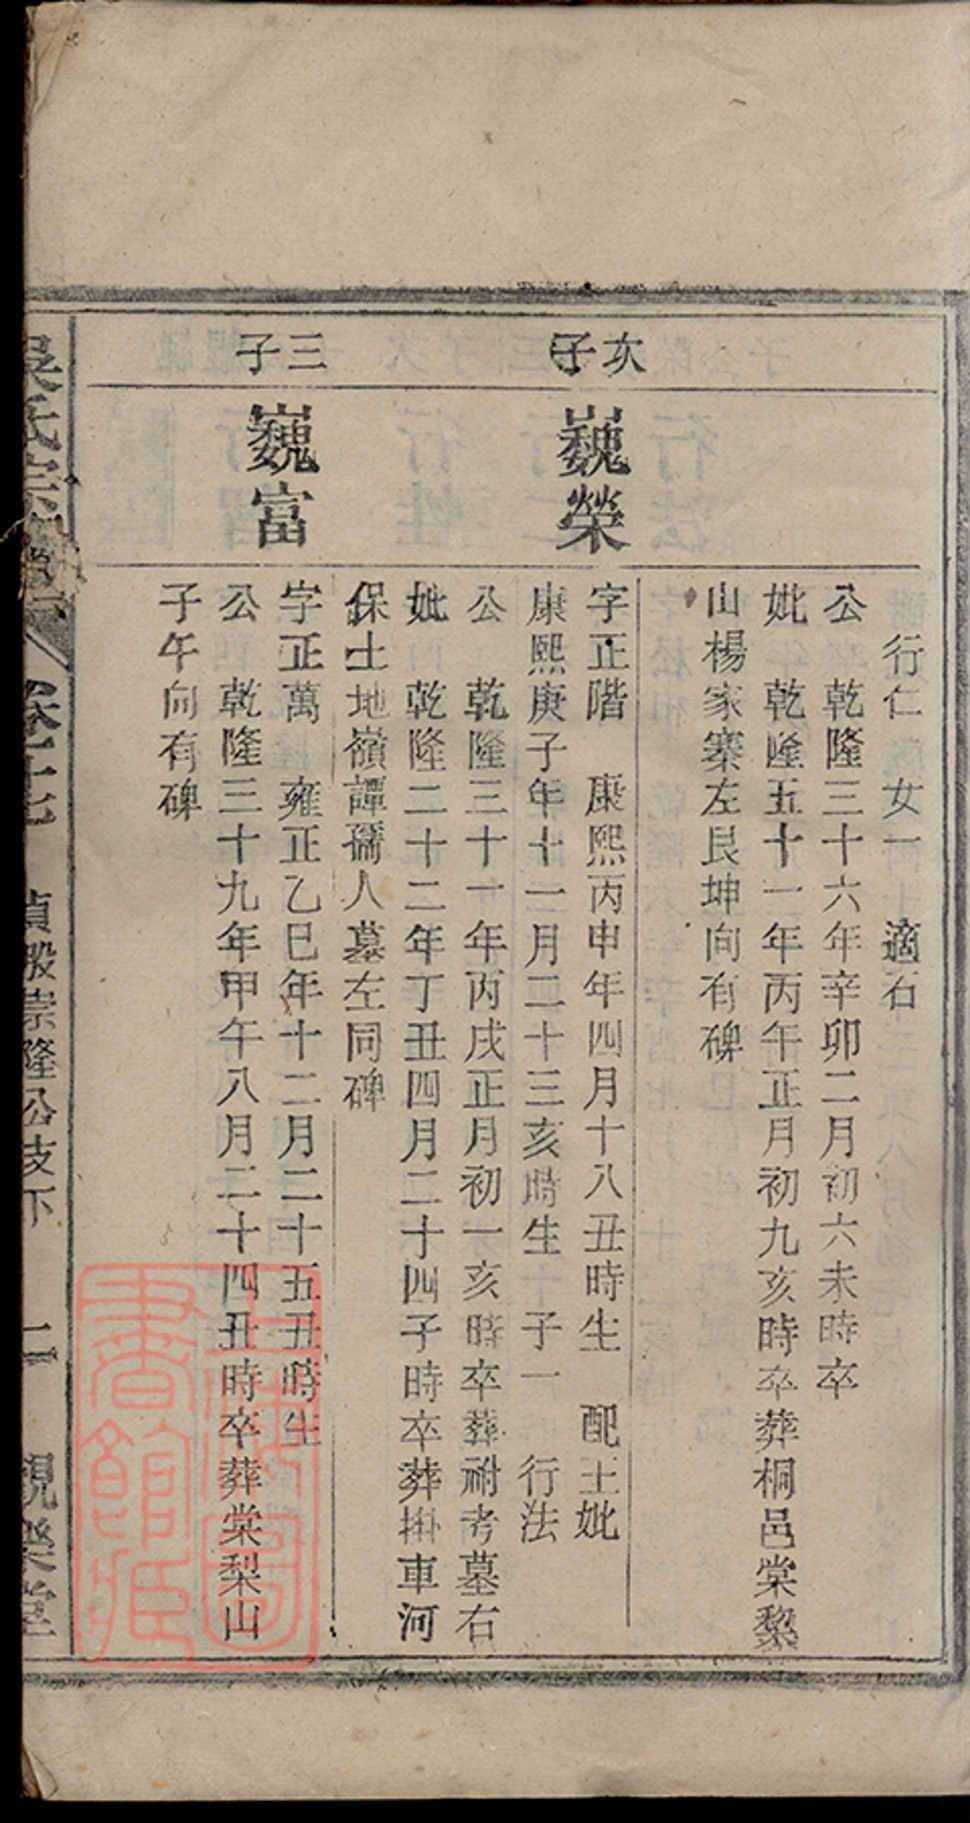 行仁 女一 適石
公 乾隆三十六年辛卯二月初六未時卒
妣 乾隆五十一年丙午正月初九亥時卒葬桐邑棠黎
山楊家寨左艮坤向有碑
次子
巍榮
字正階 康熙丙申年四月十八丑時生 配王妣
康熙庚子年十二月二十三亥時生 子一 行法
公 乾隆三十一年丙戌正月初一亥時卒葬祔考墓右
妣 乾隆二十二年丁丑四月二十四子時卒葬掛車河
保土地嶺譚孺人墓左同碑
三子
巍富
字正萬 雍正乙巳年十二月二十五丑時生
公 乾隆三十九年甲午八月二十四丑時卒葬棠梨山
子午向有碑
吳氏宗譜 卷二十七 貞股崇隆公支下 二 親樂堂
上海圖書館藏